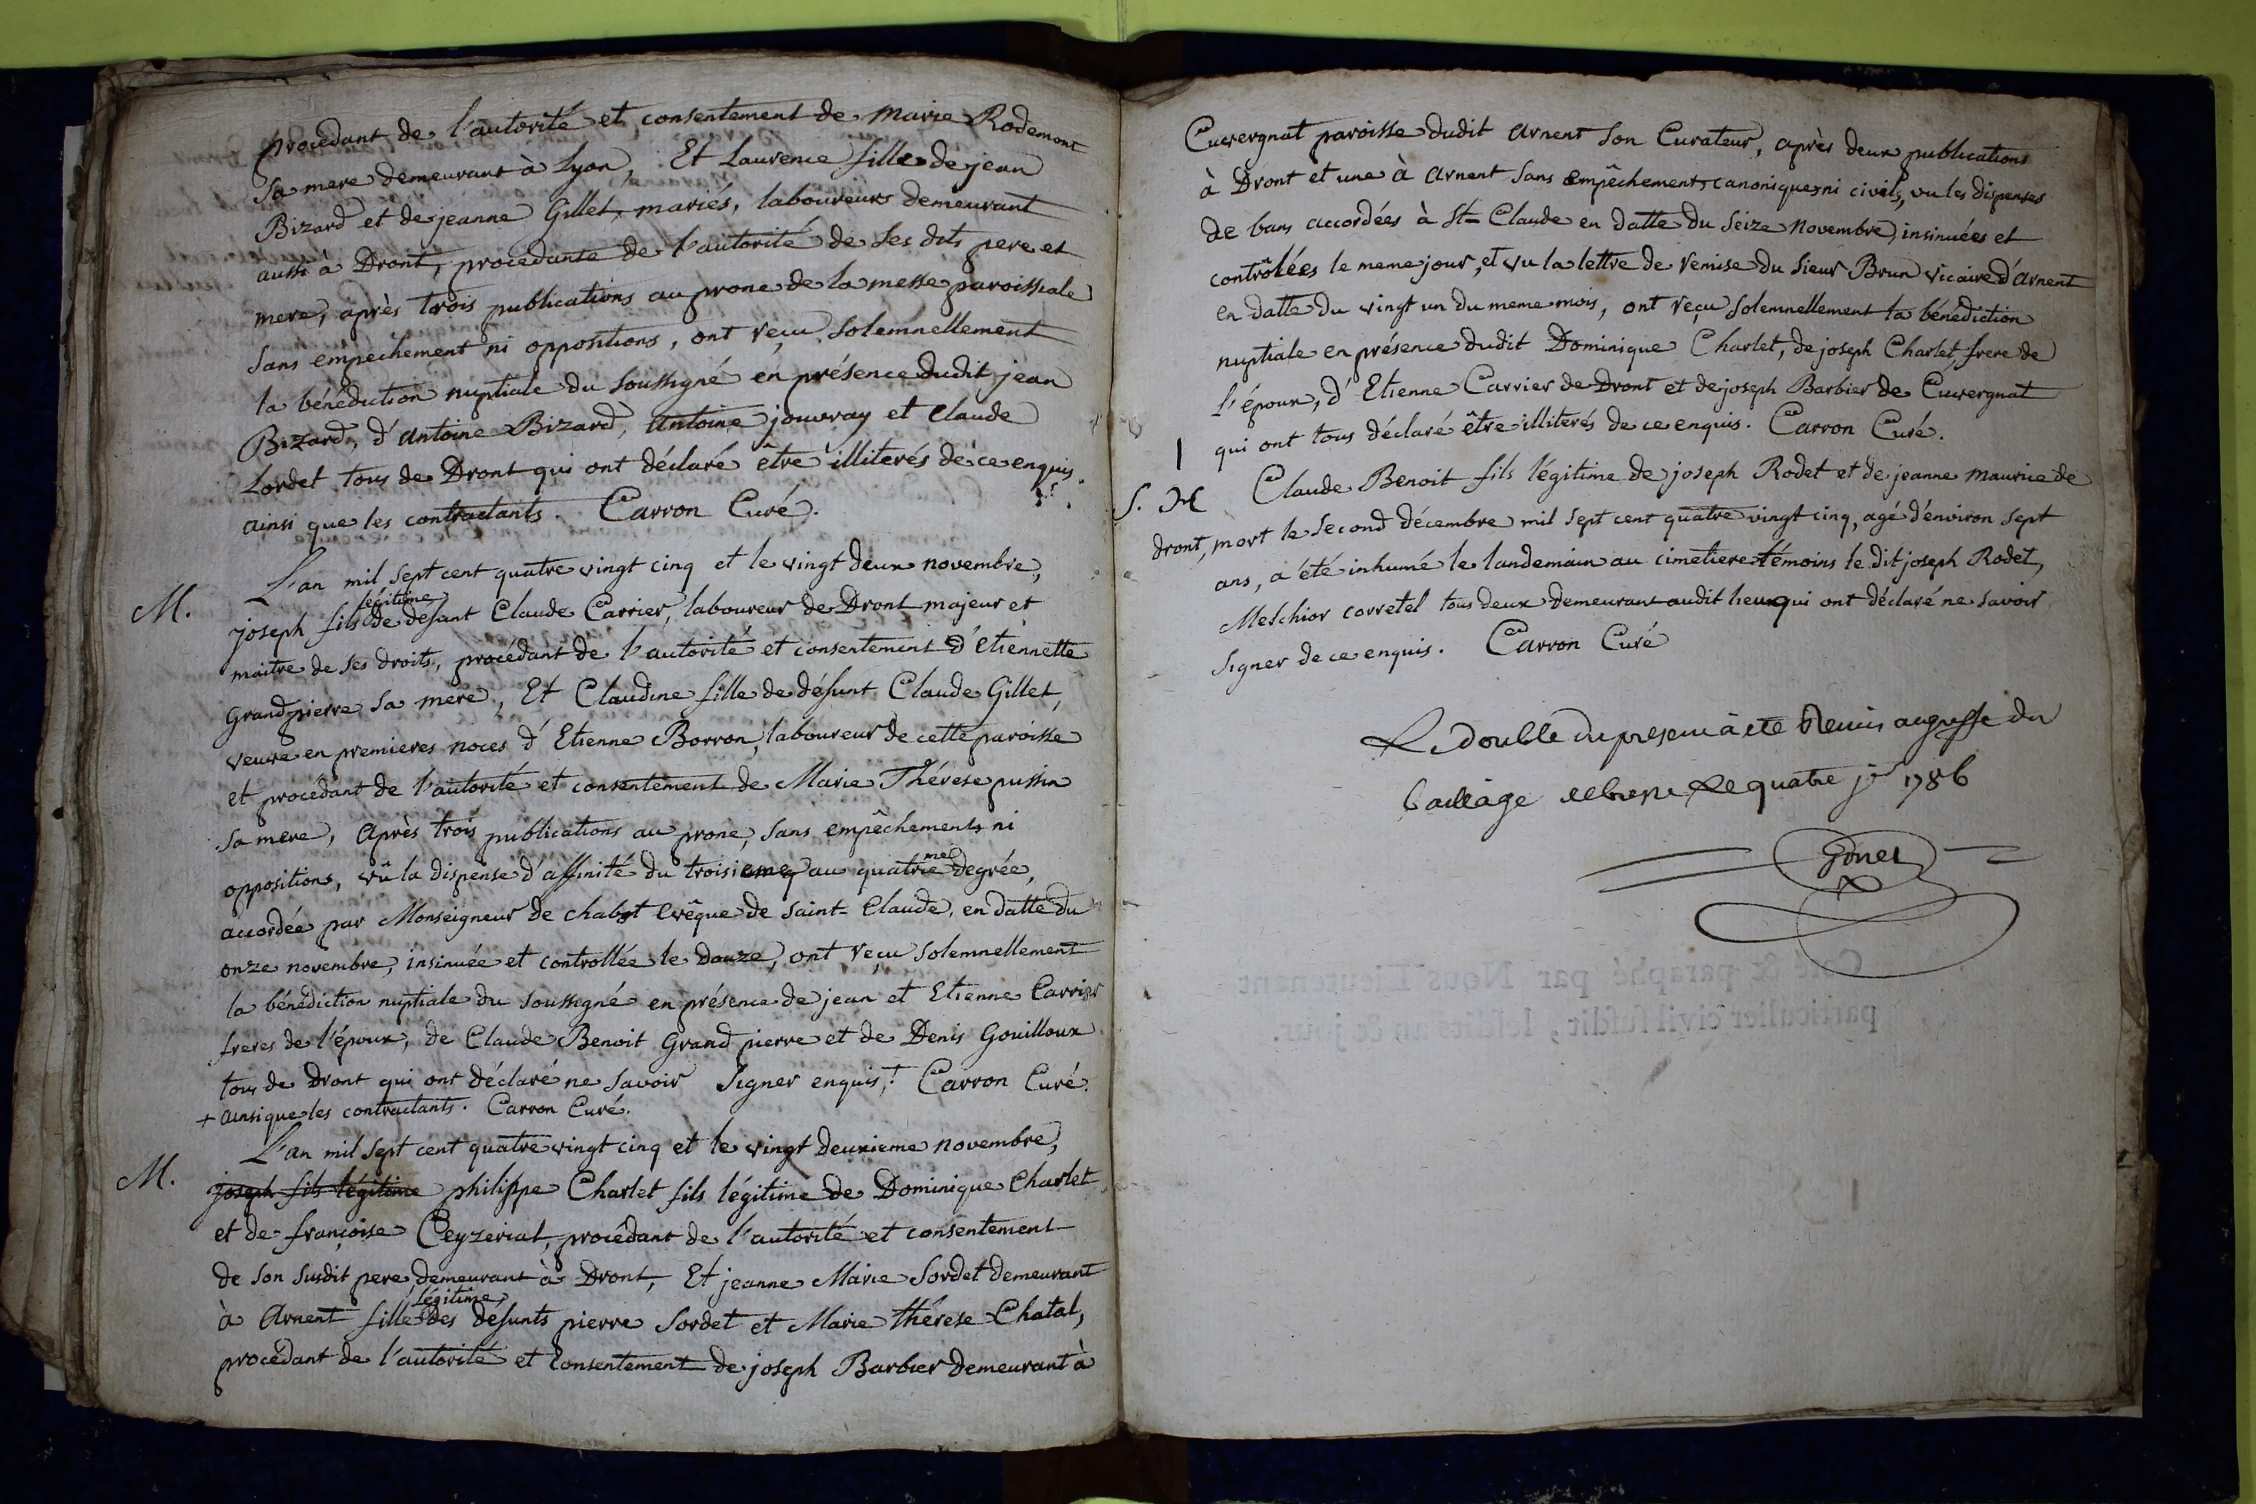 procedant de l'autorité et consentement de marie Rodemont
sa mere demeurant à Lyon, Et Laurence fille de jean
Bizard et de jeanne Gillet, mariés, laboureurs demeurant
aussi à Dront, procedante de l'autorité de ses dits pere et
mere, après trois publications au prone de la messe paroissiale
sans empechement ni oppositions, ont reçu solemnellement
la bénédiction nuptiale du soussigné en présence dudit jean
Bizard, d'antoine Bizard, antoine jouvray et claude
Lordet tous de Dront qui ont déclaré être illiterés de ce enquis.
ainsi que les contractants. Carron Curé.
M. L'an mil sept cent quatre vingt cinq et le vingt deux novembre,
joseph fils légitime de défunt Claude Carrier, laboureur de Dront majeur et
maitre de ses droits, procédant de l'autorité et consentement d'Etiennette
Grandpierre sa mere, Et Claudine fille de défunt Claude Gillet,
veuve en premieres noces d'Etienne Borron, laboureur de cette paroisse
et procédant de l'autorité et consentement de Marie Thérese pussin
sa mere, Après trois publications au prone, sans empêchements ni
oppositions, vû la dispense d'affinité du troisieme au quatrieme degrée,
accordée par Monseigneur de chabot Evêque de Saint-Claude, en datte du
onze novembre, insinuée et controllée le douze, ont reçu solemnellement
la bénédiction nuptiale du soussigné en présence de jean et Etienne Carrier
freres de l'époux, de Claude Benoit Grand pierre et de Denis Gouilloux
tous de Dront qui ont déclaré ne savoir signer enquis, + Carron Curé.
+ ainsi que les contractants. Carron Curé.
L'an mil sept cent quatre vingt cinq et le vingt deuxieme novembre,
M. joseph fils légitime philippe Charlet fils légitime de Dominique Charlet
et de françoise Ceyzeriat, procédant de l'autorité et consentement
de son susdit pere, demeurant à Dront, Et jeanne Marie Sordet demeurant
à Arnent fille légitime des défunts pierre Sordet et Marie thérese Chatal,
procédant de l'autorité et consentement de joseph Barbier demeurant à
Cuvergnat paroisse dudit arnent son Curateur, après deux publications
à Dront et une à Arnent sans empêchements canoniques ni civils, vu les dispenses
de bans accordées à St Claude en datte du seize novembre, insinuées et
contrôlées le meme jour, et vu la lettre de remise du sieur Brun vicaire d'arnent
en datte du vingt un du meme mois, ont reçu solemnellement la bénédiction
nuptiale en présence dudit Dominique Charlet, de joseph Charlet frere de
l'époux, d'Etienne Carrier de Dront et de joseph Barbier de Cuvergnat
qui ont tous déclaré être illiterés de ce enquis. Carron Curé.
S. Claude Benoit fils légitime de joseph Rodet et de jeanne maurice de
dront, mort le second décembre mil sept cent quatre vingt cinq, agé d'environ sept
ans, a été inhumé le landemain au cimetiere témoins le dit joseph Rodet,
Melchior corretel tous deux demeurant audit lieu qui ont déclaré ne savoir
signer de ce enquis. Carron Curé
Le double du present a été Remis au greffe du
bailliage le quatre jer 1786
Gonet
Coté & paraphé par Nous Lieutenant
particulier civil susdit, lesdits an & jour.